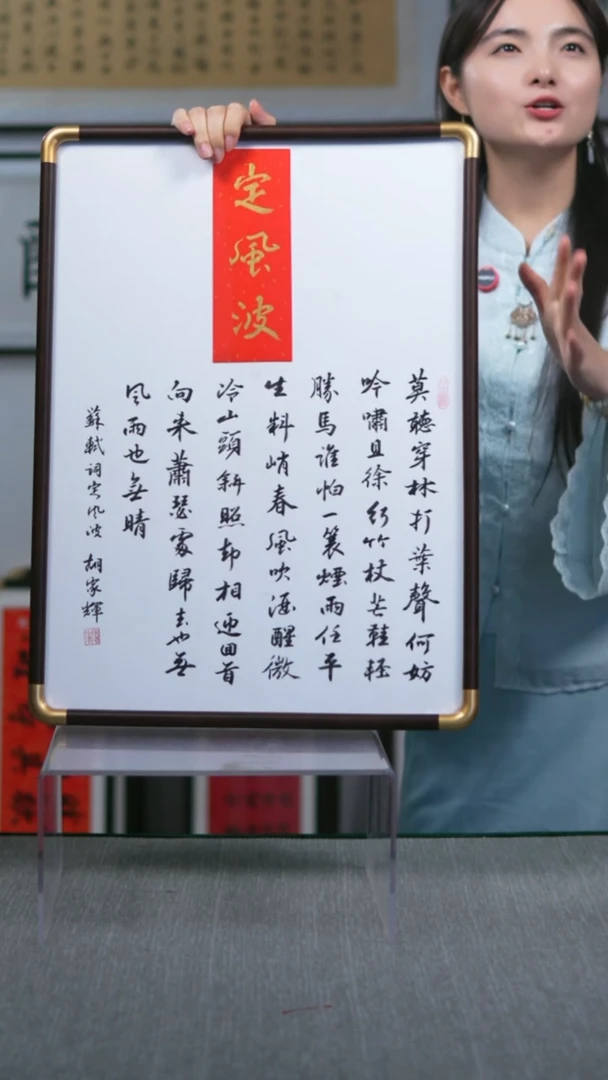 定風波
莫聽穿林打葉聲何妨
吟嘯且徐行竹杖芒鞋輕
勝馬誰怕一蓑煙雨任平
生料峭春風吹酒醒微
冷山頭斜照却相迎回首
向来蕭瑟處歸去也無
風雨也無晴
蘇軾詞定風波 胡家輝